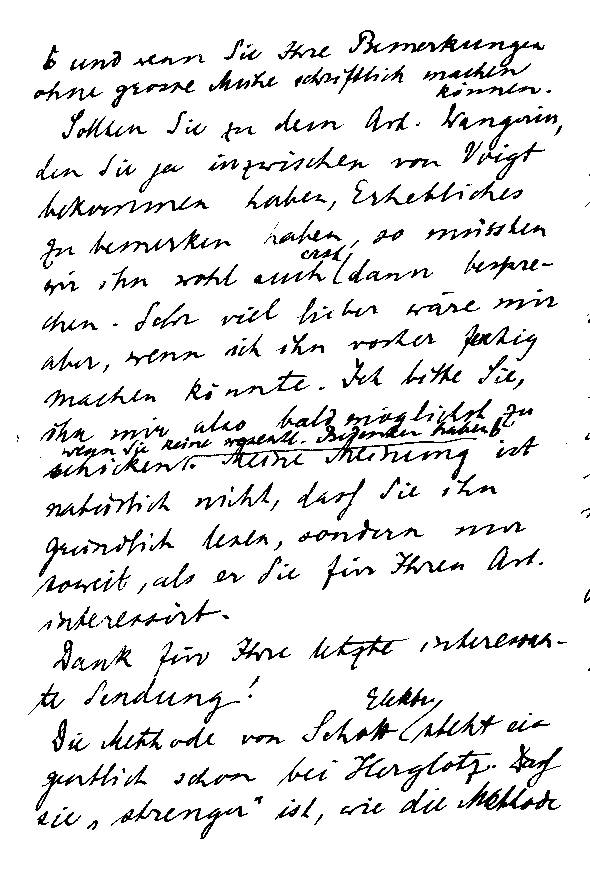 und wenn Sie Ihre Bemerkungen
ohne grosse Mühe schriftlich machen
können.
Sollten Sie zu dem Art. Wangerin,
den Sie ja inzwischen von Voigt
bekommen haben, Erhebliches
zu bemerken haben, so müssten
erst
wir ihn wohl auch (dann bespre-
chen. Sehr viel lieber wäre mir
aber, wenn ich ihn vorher fertig
machen könnte. Ich bitte Sie,
ihn mir also baldmöglichst zu
wenn Sie keine wesentl. Bedenken haben
schicken. Meine Meinung ist
natürlich nicht, dass Sie ihn
gründlich lesen, sondern nur
soweit, als er Sie für Ihren Art.
interessirt.
Dank für Ihre letzte interessan-
te Sendung!
Elektr.
Die Methode von Schott (steht ei
gentlich schon bei Herglotz. Dass
sie „strenger" ist, wie die Methode